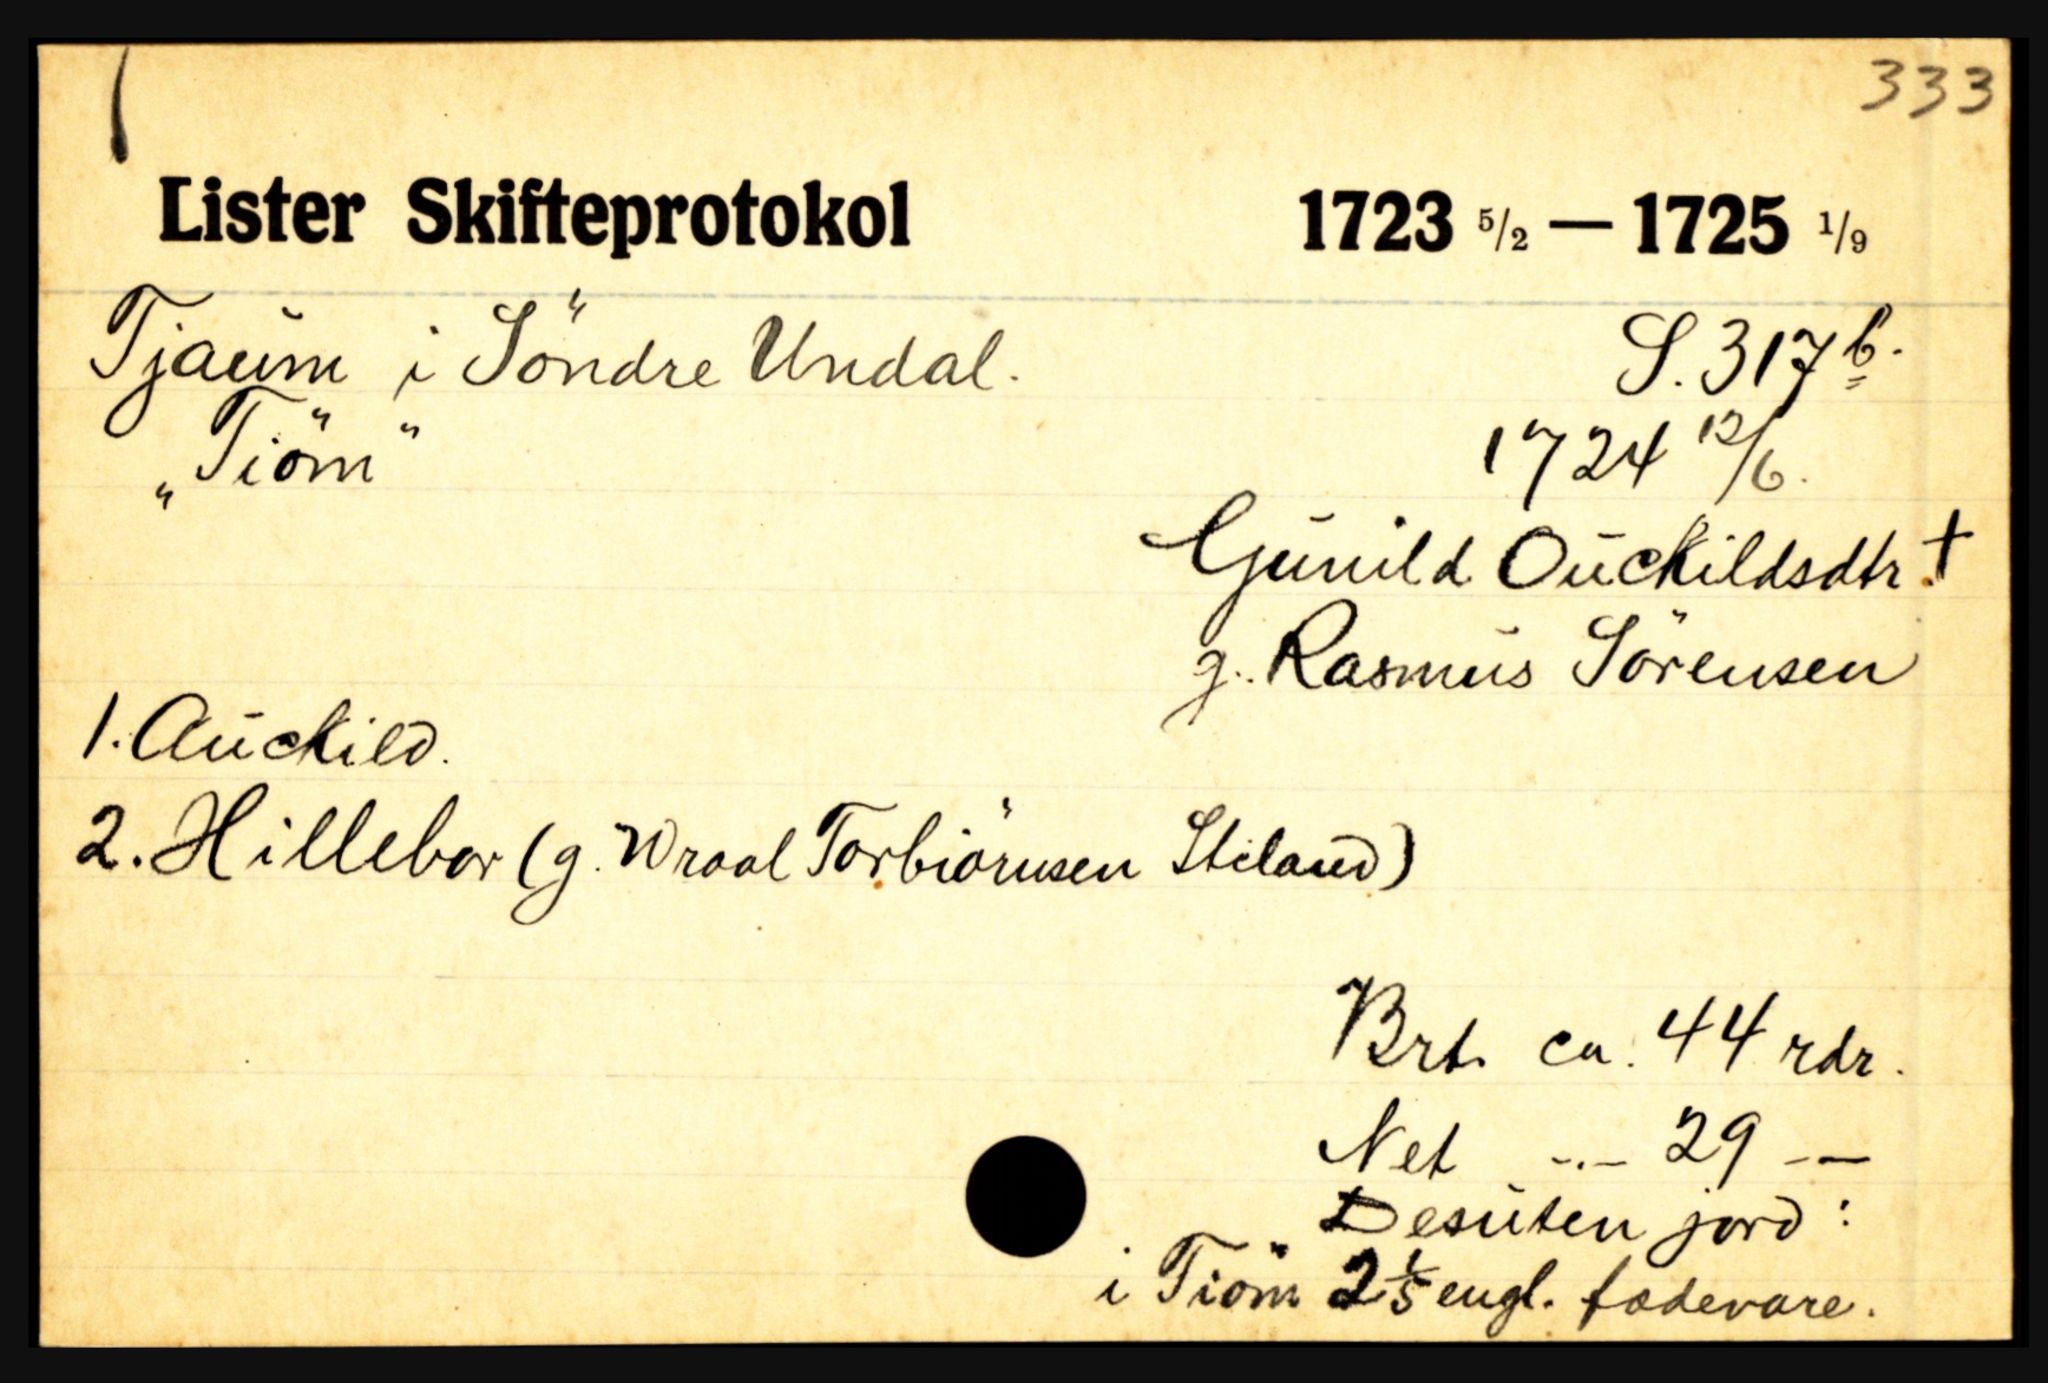 333
Lister Skifteprotokol 1723 5/2 — 1725 1/9
Tjaum i Söndre Undal. S. 317 b.
"Tiöm" 1724 12/6.
Gunild Ouckildsdtr. †
g. Rasmus Sörensen
1. Auckild.
2. Hillebor (g. Wraal Torbiörnsen Stiland)
Brt. ca. 44 rdr.
Net -.- 29 -—
Desuten jord:
i Tiöm 2 1/5 engl. fodevare.